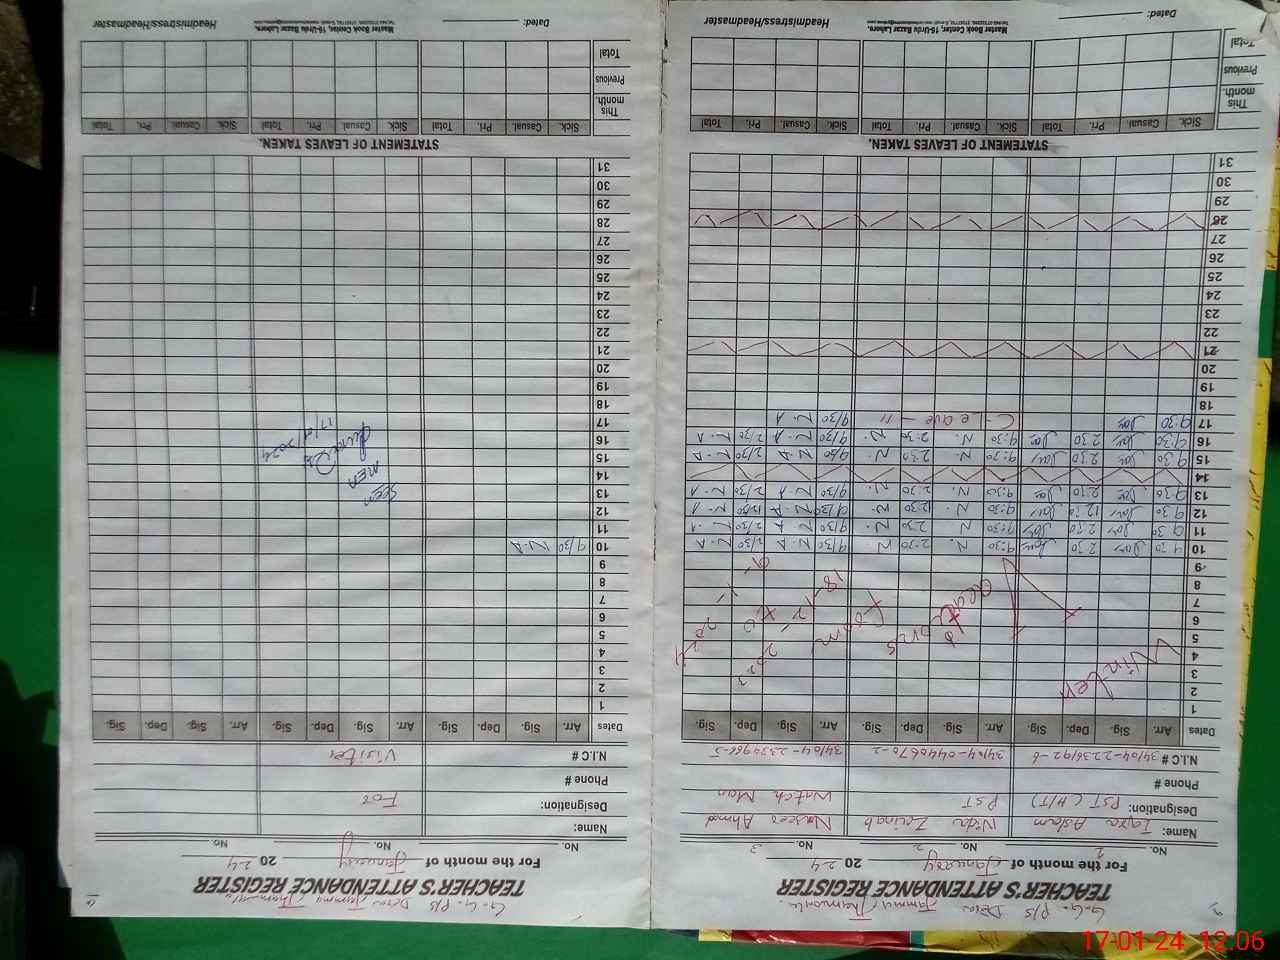 G.G. P/S Dera Jammu Thamonle.
TEACHER'S ATTENDANCE REGISTER
For the month of January 2024
No. 1 No. 2 No. 3
Name: Iqra Aslam Nida Zainab Naseer Ahmad
Designation: PST (H/T) PST Watch Man
Phone #
N.I.C # 34104-2236192-6 34104-0446670-2 34104-2374966-5
Dates Arr. Sig. Dep. Sig. Arr. Sig. Dep. Sig. Arr. Sig. Dep. Sig.
1
2
3
4
5
6
7
8
9
Winter Vacations from 18-12-2023 to 9-1-2024
10 9:30 2:30 9:30 N. 2:30 N. 9/30 N.A 2/30 N.A
11 9:30 2:30 9:30 N. 2:30 N. 9/30 N.A 2/30 N.A
12 9:30 12:30 9:30 N. 12:30 N. 9/30 N.A 12/30 N.A
13 9:30 2:30 9:30 N. 2:30 N. 9/30 N.A 2/30 N.A
14
15 9:30 2:30 9:30 N. 2:30 N. 9/30 N.A 2/30 N.A
16 9:30 2:30 9:30 N. 2:30 N. 9/30 N.A 2/30 N.A
17 9:30 C-Leave 9/30 N.A
18
19
20
21
22
23
24
25
26
27
28
29
30
31
STATEMENT OF LEAVES TAKEN.
Sick. Casual. Pri. Total Sick. Casual. Pri. Total Sick. Casual. Pri. Total
This month.
Previous
Total
Master Book Center, 16-Urdu Bazar Lahore.
Dated: Headmistress/Headmaster
G.G. P/S Dera Jammu
TEACHER'S ATTENDANCE REGISTER
For the month of January 2024
No. No. No.
Name:
Designation: For
Phone #
N.I.C # Visiter
Dates Arr. Sig. Dep. Sig. Arr. Sig. Dep. Sig. Arr. Sig. Dep. Sig.
1
2
3
4
5
6
7
8
9
10 9/30 N.A
11
12
13
14
15
16
17
18
19
20
21
22
23
24
25
26
27
28
29
30
31
Seen
MEN
17/01/2024
STATEMENT OF LEAVES TAKEN.
Sick. Casual. Pri. Total Sick. Casual. Pri. Total Sick. Casual. Pri. Total
This month.
Previous
Total
Master Book Center, 16-Urdu Bazar Lahore.
Dated: Headmistress/Headmaster
17-01-24 12:06